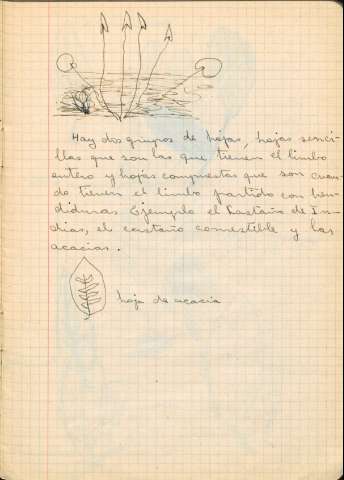 Hay dos grupos de hojas, hojas senci-
llas que son las que tienen el limbo
entero y hojas compuestas que son cuan-
do tienen el limbo partido con hen-
diduras. Ejemplo el Castaño de In-
dias, el castaño comestible y las
acacias.
hoja de acacia